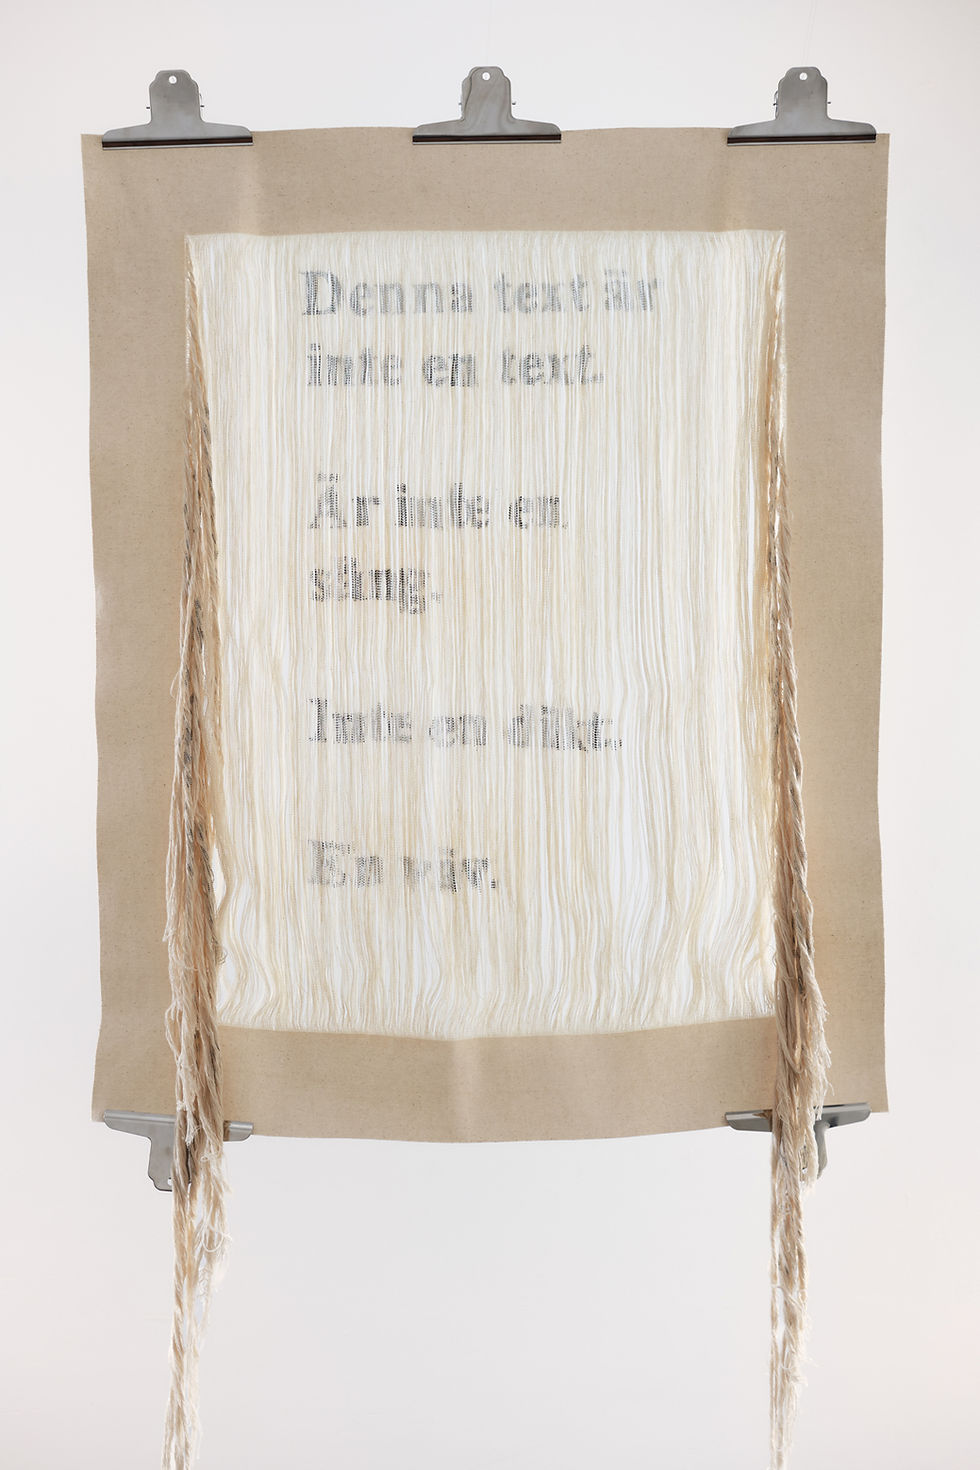 Denna text är
inte en text.
Är inte en
sång.
Inte en dikt.
En väv.